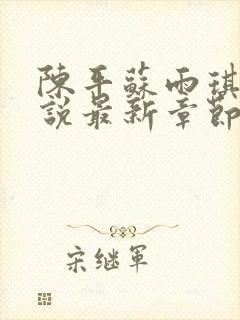 陳平蘇雨琪
說最新章節
宋继軍